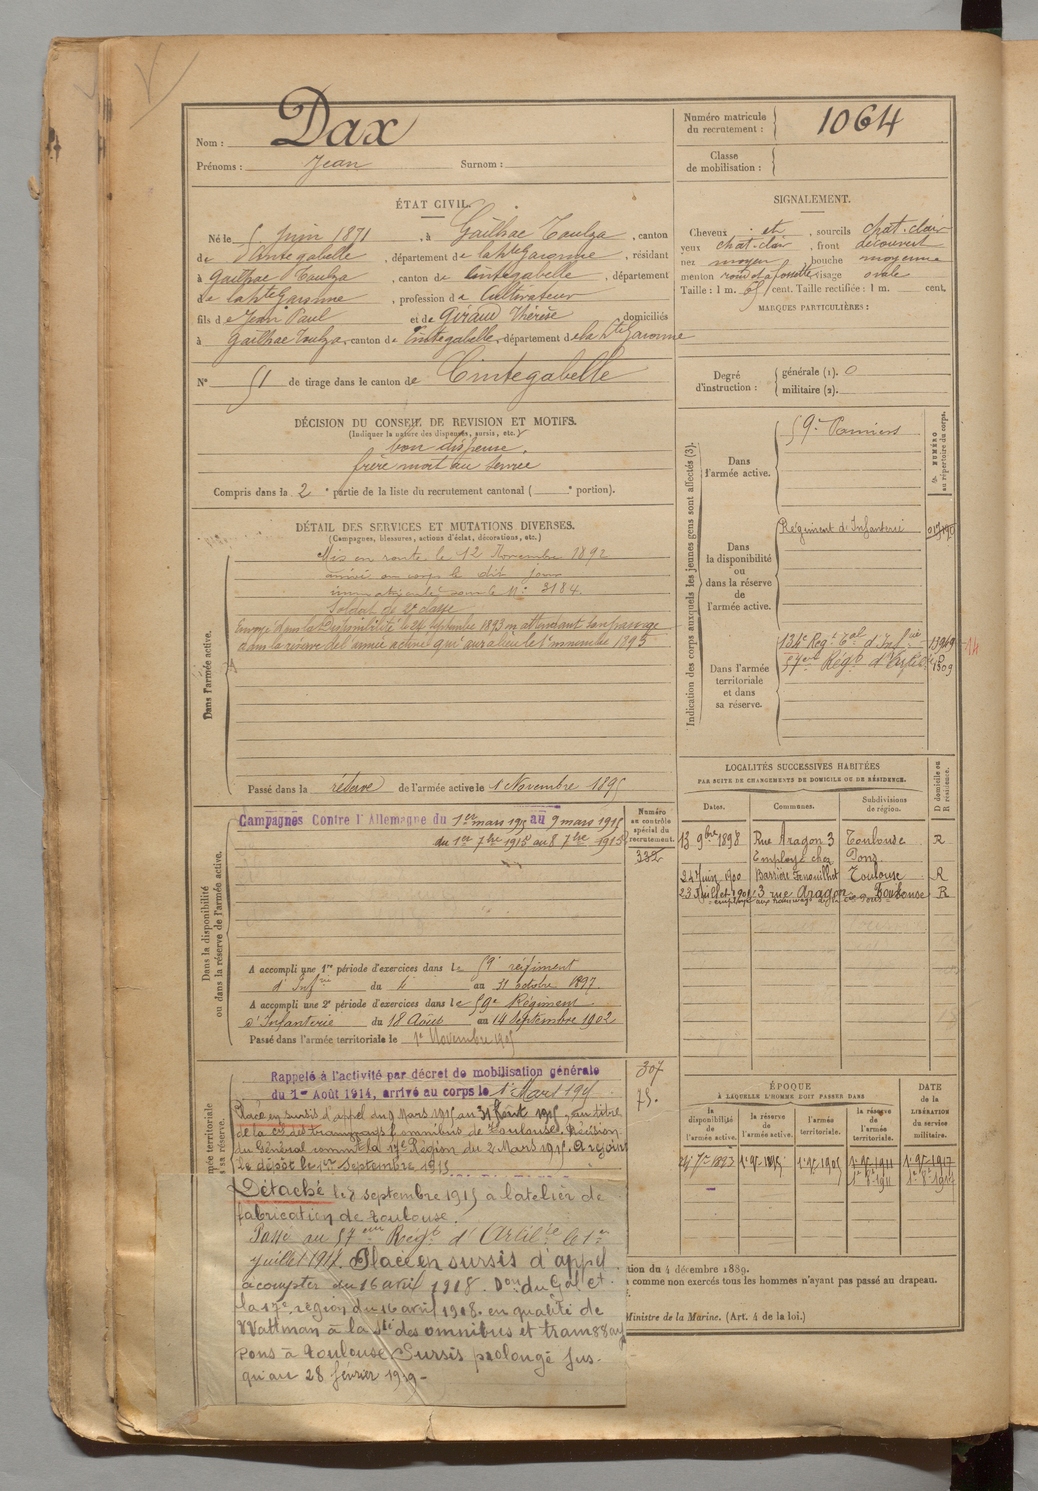 Nom : Dax
Prénoms : Jean Surnom :
Numéro matricule du recrutement : 1064
Classe de mobilisation :
ÉTAT CIVIL.
Né le 5 Juin 1871, à Gailhac Toulza, canton
de Cintegabelle, département de la Hte Garonne, résidant
à Gailhac Toulza, canton de Cintegabelle, département
de la Hte Garonne, profession de Cultivateur
fils de Jean Paul et de Giraud Thérèse domiciliés
à Gailhac Toulza, canton de Cintegabelle, département de la Hte Garonne
N° 51 de tirage dans le canton de Cintegabelle
SIGNALEMENT.
Cheveux et, sourcils chat. clair
yeux chat. clair, front découvert
nez moyen, bouche moyenne
menton rond et à fossette, visage ovale
Taille : 1 m. 65 cent. Taille rectifiée : 1 m. cent.
MARQUES PARTICULIÈRES :
Degré d'instruction : générale (1). 0
militaire (2).
DÉCISION DU CONSEIL DE REVISION ET MOTIFS.
(Indiquer la nature des dispenses, sursis, etc.)
bon dispensé.
frère mort au service
Compris dans la 2e partie de la liste du recrutement cantonal ( e portion).
DÉTAIL DES SERVICES ET MUTATIONS DIVERSES.
(Campagnes, blessures, actions d'éclat, décorations, etc.)
Dans l'armée active.
Mis en route le 12 Novembre 1892
arrivé au corps le dit jour
immatriculé sous le N° 3184.
Soldat de 2e classe
Envoyé dans la Disponibilité le 24 Septembre 1893 en attendant son passage
dans la réserve de l'armée active qui aura lieu le 1er novembre 1895
Passé dans la réserve de l'armée active le 1 Novembre 1895
Dans la disponibilité ou dans la réserve de l'armée active.
Campagnes Contre l'Allemagne du 1er mars 1915 au 9 mars 1915
du 1er 7bre 1915 au 8 7bre 1915
Numéro au contrôle spécial du recrutement.
332
A accompli une 1re période d'exercices dans le 59e régiment
d'Infrie du 4 au 31 octobre 1897.
A accompli une 2e période d'exercices dans le 59e Régiment
d'Infanterie du 18 Août au 14 Septembre 1902
Passé dans l'armée territoriale le 1er Novembre 1905
307
75.
Rappelé à l'activité par décret de mobilisation générale
du 1er Août 1914, arrivé au corps le 1er Mars 1915
Placé en sursis d'appel du 9 Mars 1915 au 31 Août 1915, au titre
de la Cie des tramways & omnibus de Toulouse. Décision
du Général commt la 17e Région du 2 Mars 1915. A rejoint
le dépôt le 1er Septembre 1915
Détaché le 8 septembre 1915 à l'atelier de
fabrication de toulouse.
Passé au 57eme Regt d'Artilrie le 1er
juillet 1917. Placé en sursis d'appel
à compter du 16 avril 1918. Don du Gal ct
la 17e région du 16 avril 1918. en qualité de
Wattman à la Sté des omnibus et tramway
Pons à Toulouse Sursis prolongé jus-
qu'au 28 février 1919-
Indication des corps auxquels les jeunes gens sont affectés (3).
NUMÉRO au répertoire du corps.
Dans l'armée active. 59e Pamiers
Dans la disponibilité ou dans la réserve de l'armée active. Régiment d'Infanterie
Dans l'armée territoriale et dans sa réserve.
134e Regt Tal d'Infrie
57eme Régt d'Artilie 1809
LOCALITÉS SUCCESSIVES HABITÉES
PAR SUITE DE CHANGEMENTS DE DOMICILE OU DE RÉSIDENCE.
Dates. Communes. Subdivisions de région. D domicile ou R résidence.
13 9bre 1898 Rue Aragon 3 Toulouse R
Employé chez Pons.
24 Juin 1900 Barrière Fenouilhet Toulouse R
23 Juillet 1901 3 rue Aragon Toulouse R
ÉPOQUE
À LAQUELLE L'HOMME DOIT PASSER DANS
la disponibilité de l'armée active. la réserve de l'armée active. l'armée territoriale. la réserve de l'armée territoriale.
DATE de la LIBÉRATION du service militaire.
24 7bre 1893 1er 9bre 1895 1er 9bre 1905 1er 9bre 1911 1er 9bre 1917
tion du 4 décembre 1889.
comme non exercés tous les hommes n'ayant pas passé au drapeau.
Ministre de la Marine. (Art. 4 de la loi.)